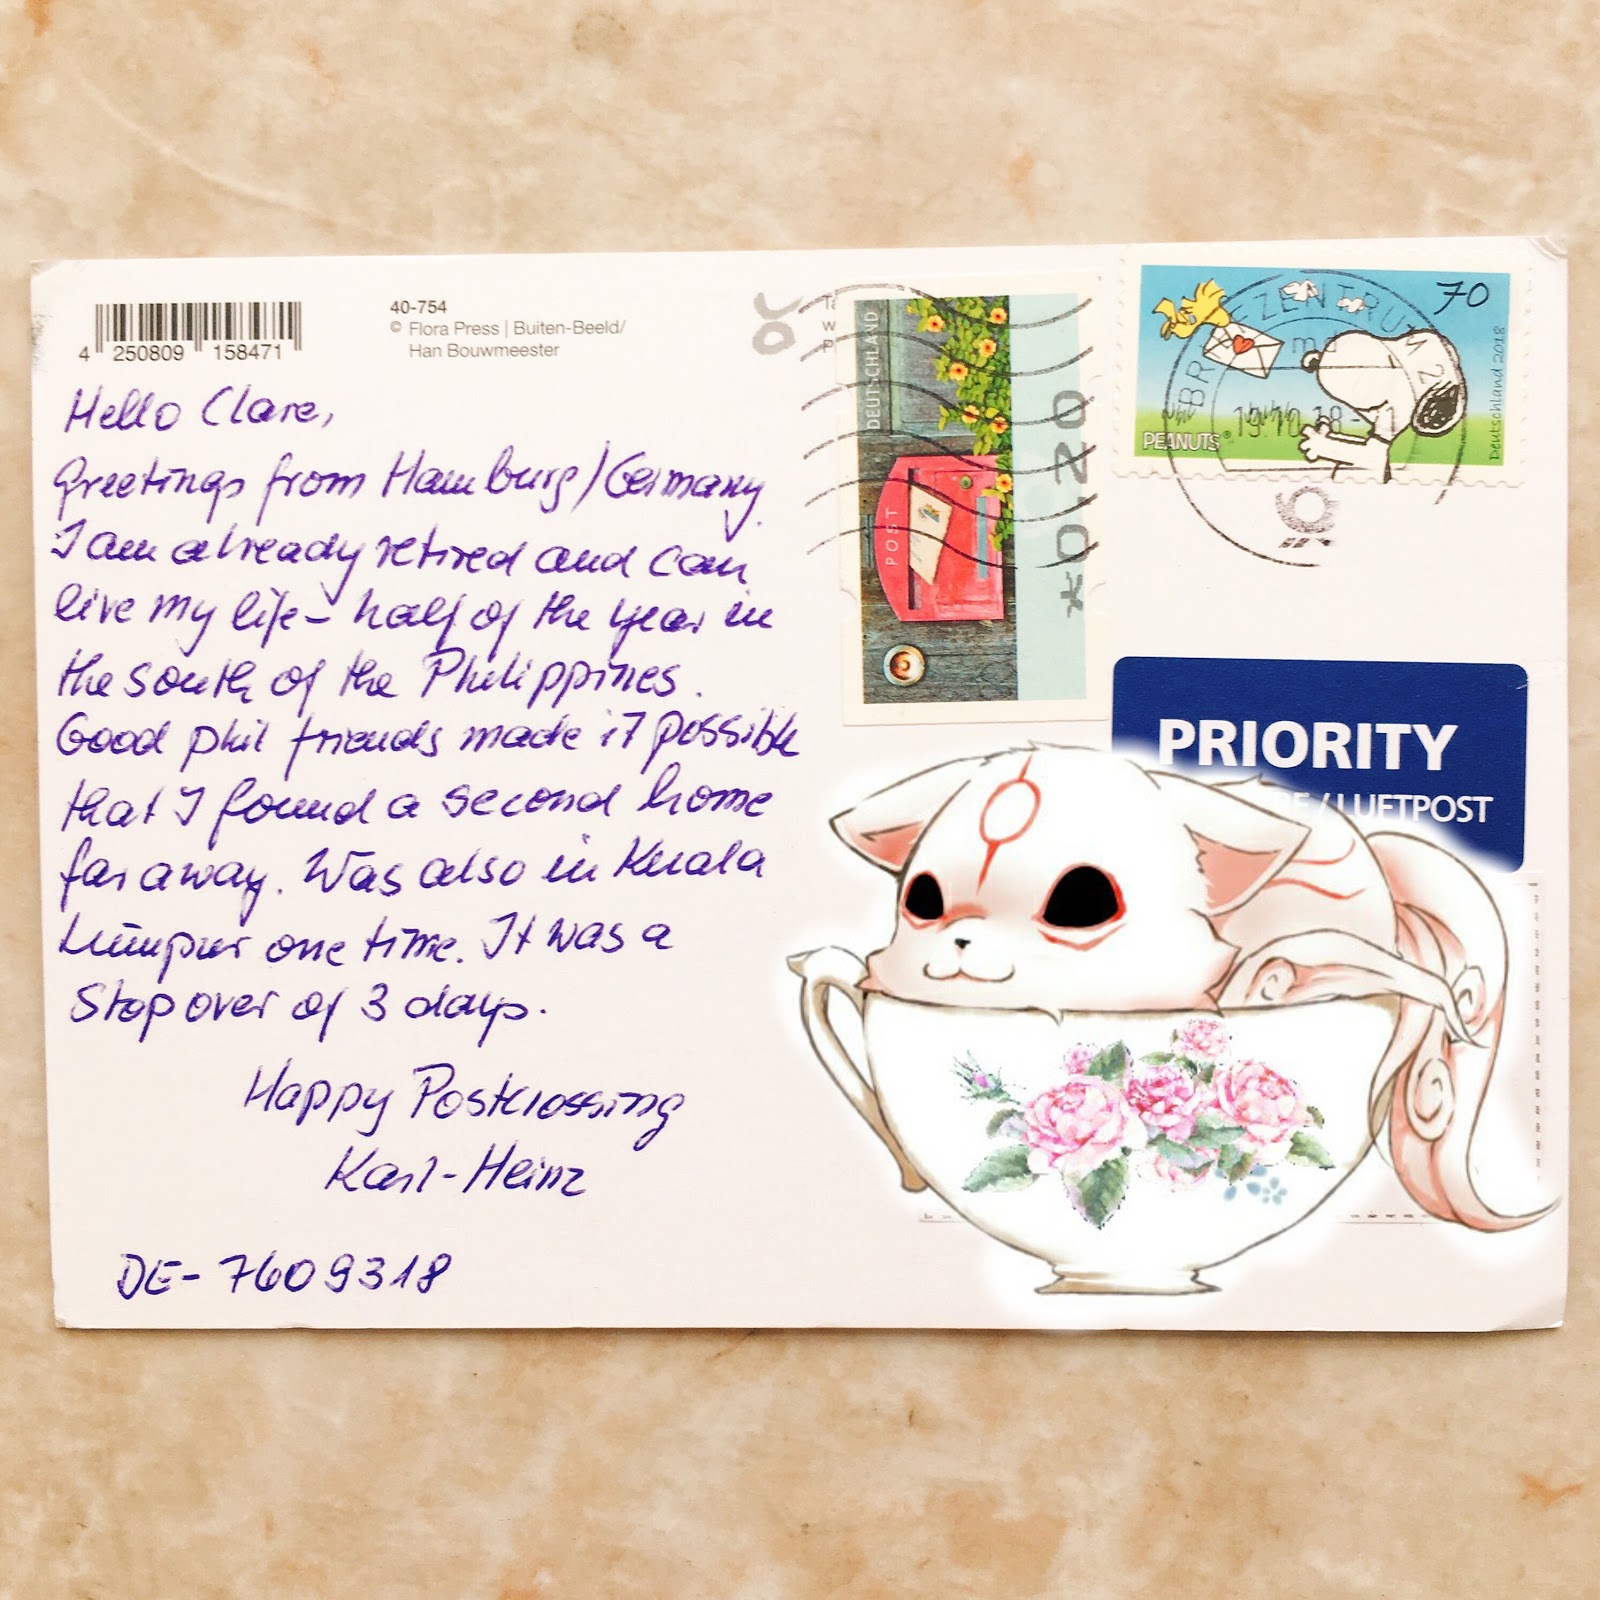 4 250809 158471
40-754
© Flora Press | Buiten-Beeld/
Han Bouwmeester
Hello Clare,
Greetings from Hamburg/Germany.
I am already retired and can
live my life - half of the year in
the south of the Philippines.
Good phil friends made it possible
that I found a second home
far away. Was also in Kuala
Lumpur one time. It was a
Stop over of 3 days.
Happy Postcrossing
Karl-Heinz
DE-7609318
DEUTSCHLAND
POST
*0,20
70
BRIEFZENTRUM
19.10.18
PEANUTS®
Deutschland 2018
PRIORITY
/ LUFTPOST